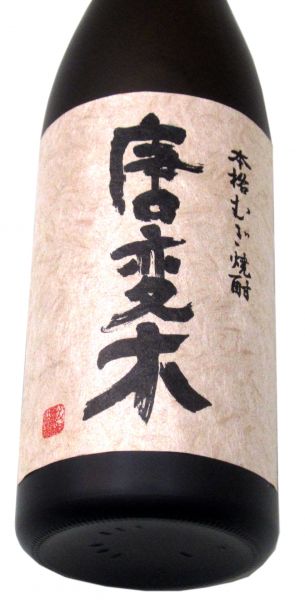 本格むぎ焼酎
唐変木